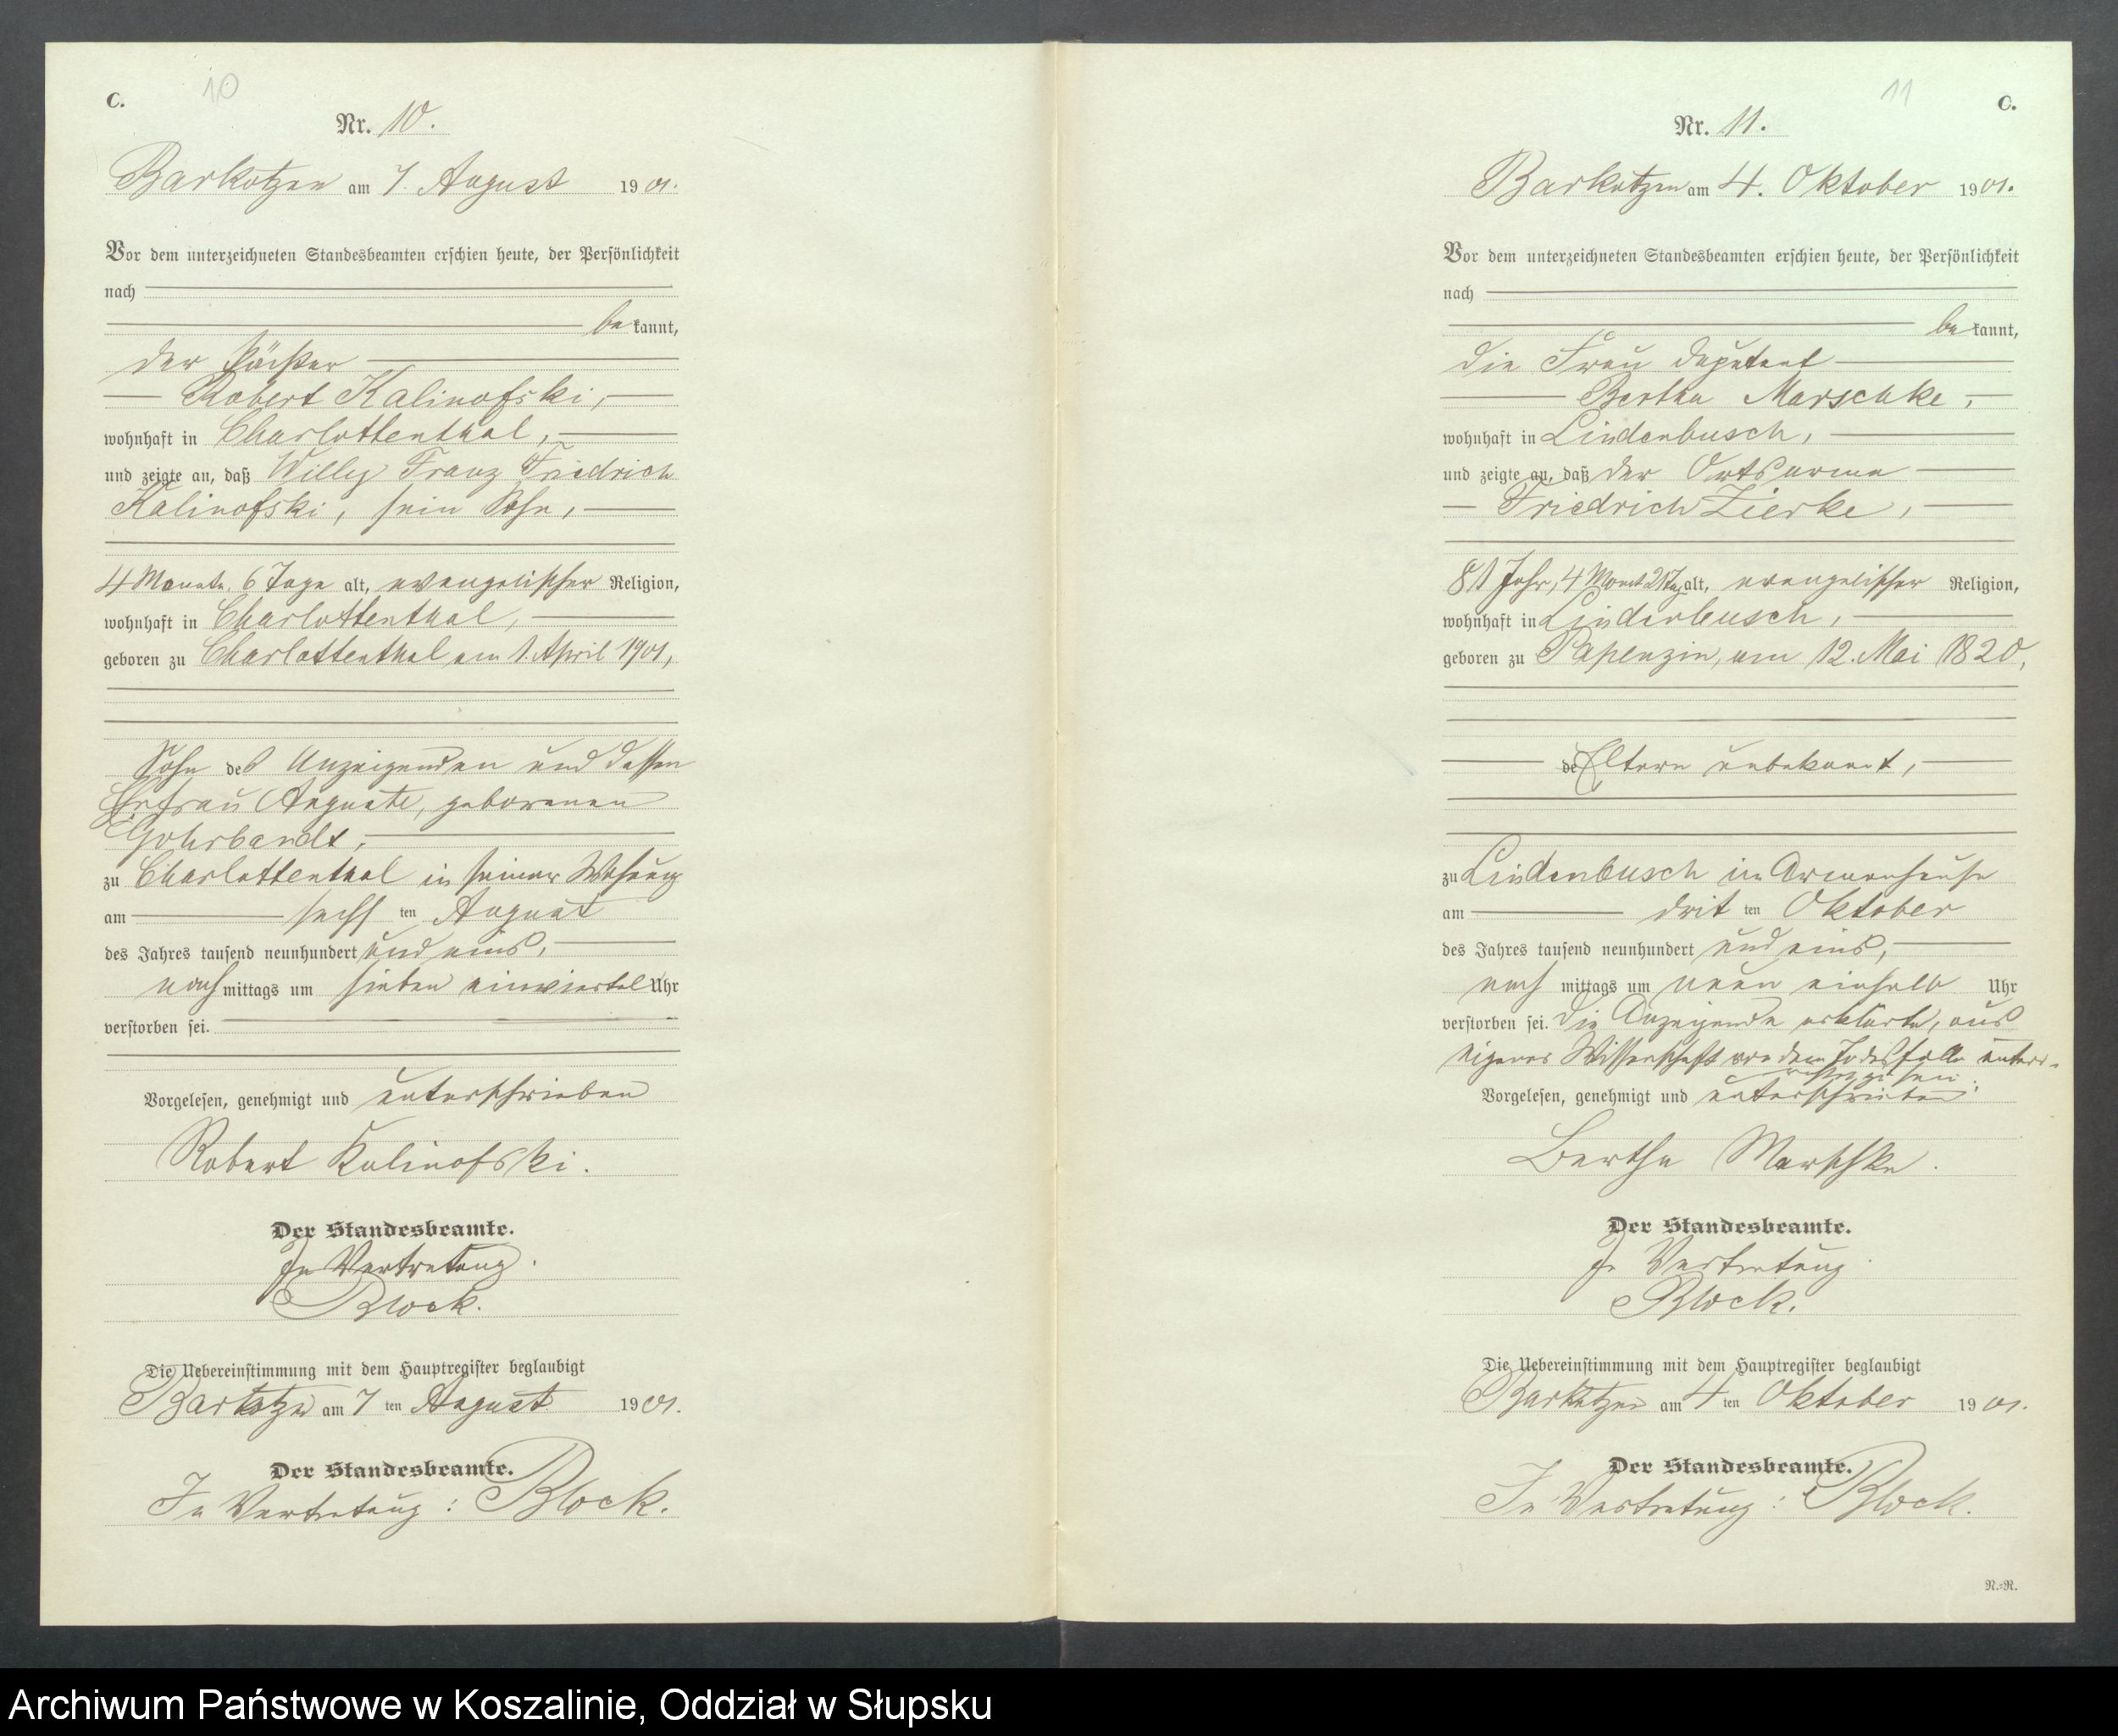 C.
10
Nr. 10.
Barkotzen am 7. August 1901.
Vor dem unterzeichneten Standesbeamten erschien heute, der Persönlichkeit
nach
be kannt,
der
Robert Kalinofski,
wohnhaft in Charlottenthal,
und zeigte an, daß Willy Franz Friedrich
Kalinofski, sein Sohn,
4 Monate, 6 Tage alt, evangelischer Religion,
wohnhaft in Charlottenthal,
geboren zu Charlottenthal am 1. April 1901,
Sohn des Anzeigenden und dessen
Ehefrau Auguste, geborenen
Gohrbandt,
zu Charlottenthal in seiner Wohnung
am sechs ten August
des Jahres tausend neunhundert und eins,
nach mittags um sieben einviertel Uhr
verstorben sei.
Vorgelesen, genehmigt und unterschrieben
Robert Kalinofski.
Der Standesbeamte.
In Vertretung.
Block.
Die Uebereinstimmung mit dem Hauptregister beglaubigt
Barkotzen am 7 ten August 1901.
Der Standesbeamte.
In Vertretung: Block.
11
C.
Nr. 11.
Barkotzen am 4. Oktober 1901.
Vor dem unterzeichneten Standesbeamten erschien heute, der Persönlichkeit
nach
be kannt,
die Frau Deputant
Bertha Marschke,
wohnhaft in Lindenbusch,
und zeigte an, daß der Ortsarme
Friedrich Zierke,
81 Jahr, 4 Monat 21 Tag alt, evangelischer Religion,
wohnhaft in Lindenbusch,
geboren zu Papenzin, am 12. Mai 1820,
de Eltern unbekannt,
zu Lindenbusch im Armenhause
am drit ten Oktober
des Jahres tausend neunhundert und eins,
nach mittags um neun einhalb Uhr
verstorben sei. Die Anzeigende erklärte, aus
eigener Wissenschaft von dem Todesfalle unter-
richtet zu sein.
Vorgelesen, genehmigt und unterschrieben.
Bertha Marschke.
Der Standesbeamte.
In Vertretung
Block.
Die Uebereinstimmung mit dem Hauptregister beglaubigt
Barkotzen am 4 ten Oktober 1901.
Der Standesbeamte.
In Vertretung: Block.
N.-N.
Archiwum Państwowe w Koszalinie, Oddział w Słupsku